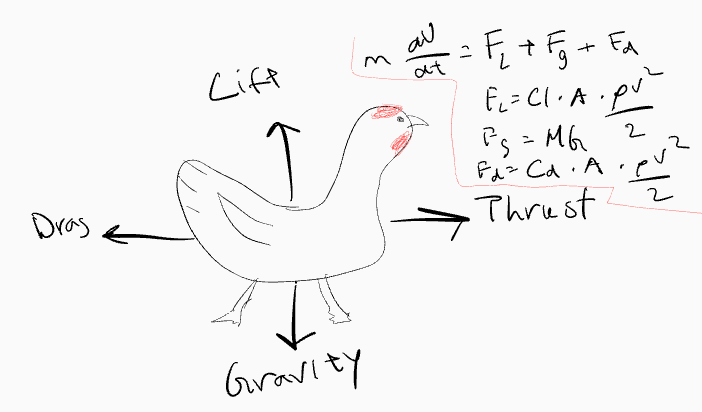 m dv/dt = F_L + F_g + F_d
F_L = Cl · A · ρv²/2
F_g = MG
F_d = Cd · A · ρv²/2
Lift
Thrust
Drag
Gravity